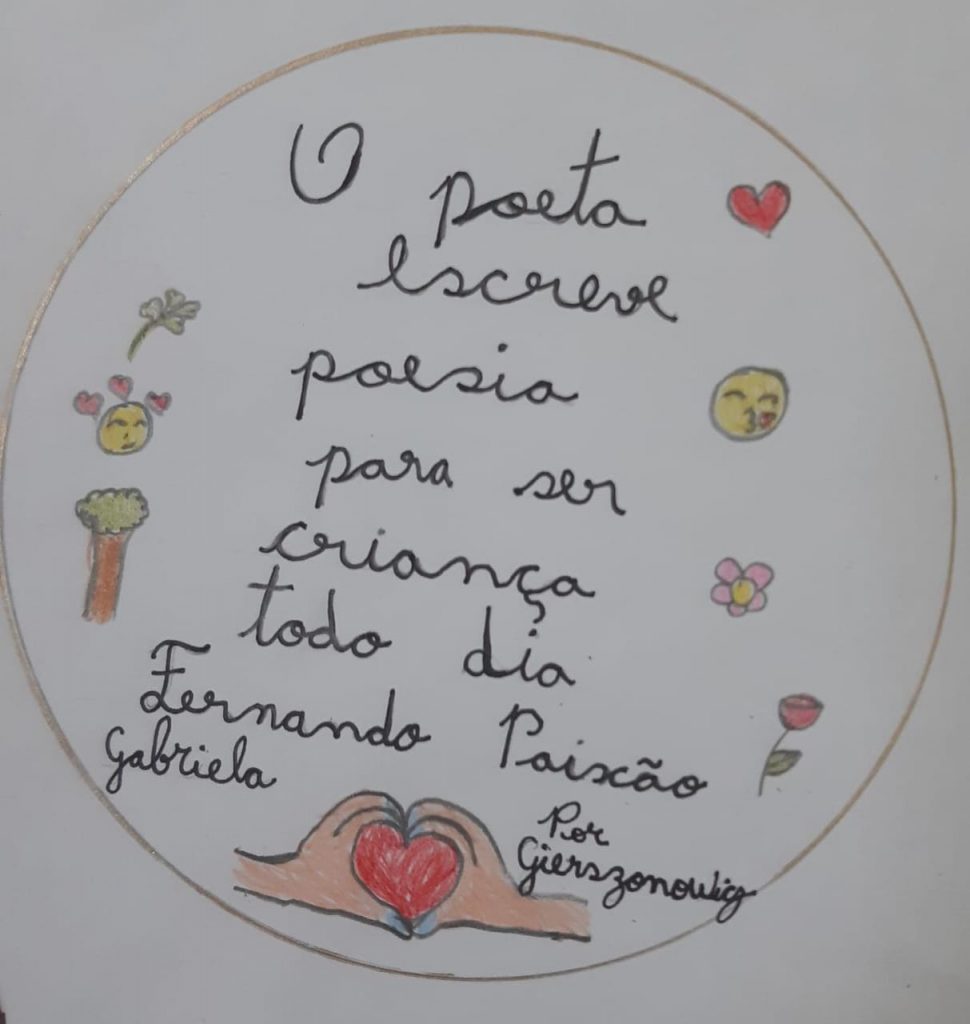 O poeta
escreve
poesia
para ser
criança
todo dia
Fernando Paixão
Gabriela
Por
Gierszonowicz